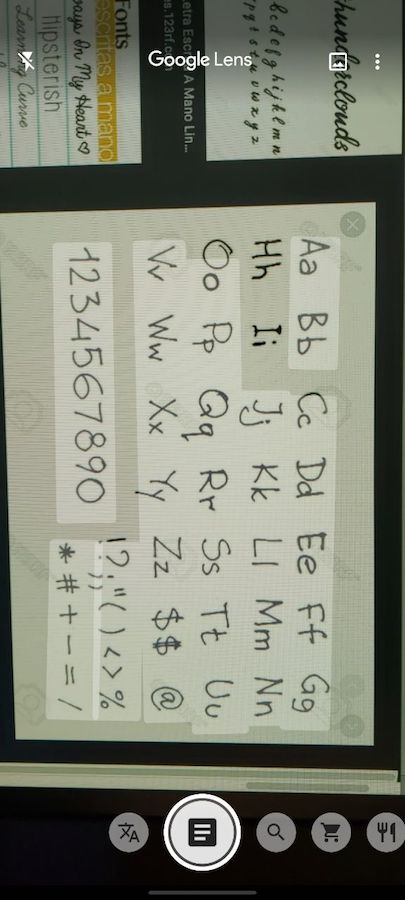 Google Lens
bcdefghijklmn
etra Escri A Mano Lin...
Fonts
escritas a mano
In My Heart ♡
Hipsterish
Learning Curve
Aa Bb Cc Dd Ee Ff Gg
Hh Ii Jj Kk Ll Mm Nn
Oo Pp Qq Rr Ss Tt Uu
Vv Ww Xx Yy Zz $$ @
1234567890
!?:;,"()<>%
*#+-=/